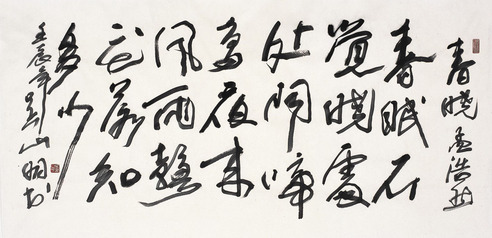 春曉 孟浩然
春眠不
覺曉處
处聞啼
鳥夜来
風雨聲
花落知
多少
壬辰年吴山明书